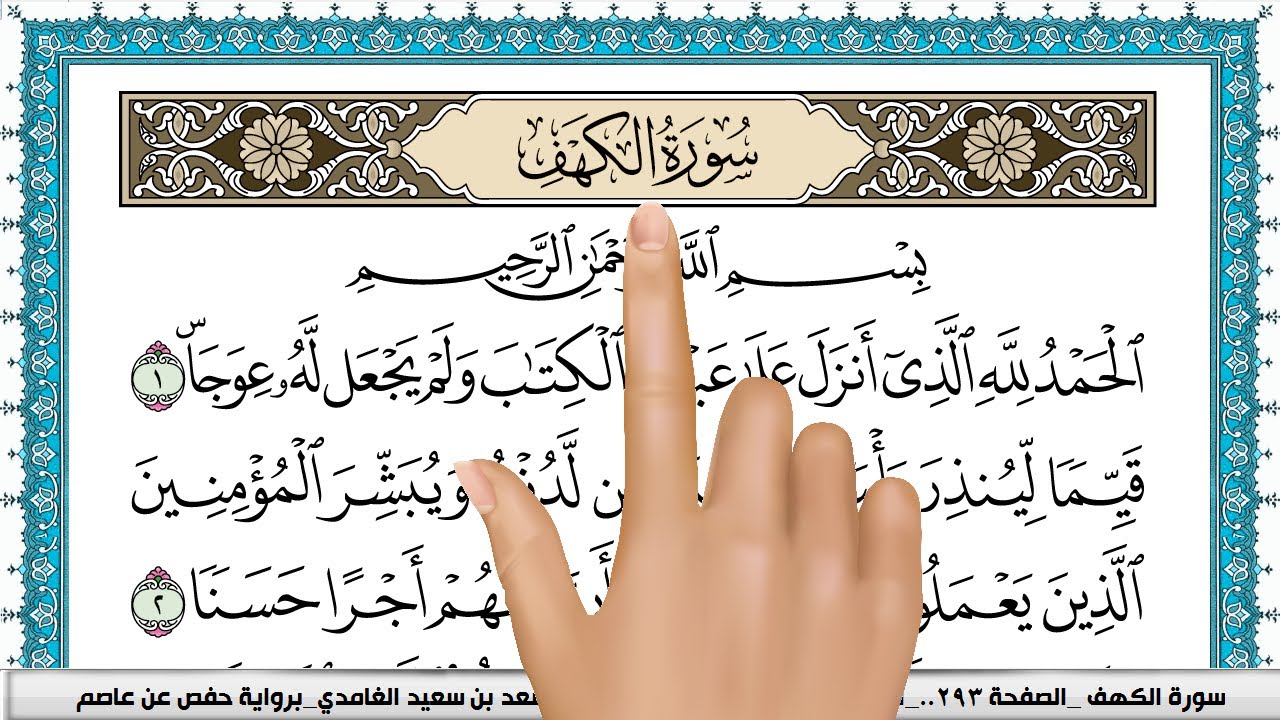 سُورَةُ الكَهْفِ
بِسْمِ ٱللَّهِ ٱلرَّحِيمِ
ٱلْحَمْدُ لِلَّهِ ٱلَّذِىٓ أَنزَلَ عَلَىٰ ٱلْكِتَٰبَ وَلَمْ يَجْعَل لَّهُۥ عِوَجَاۜ ١
قَيِّمًا لِّيُنذِرَ لَّدُنْهُ وَيُبَشِّرَ ٱلْمُؤْمِنِينَ
ٱلَّذِينَ لَهُمْ أَجْرًا حَسَنًا ٢
سورة الكهف _الصفحة ٢٩٣.. بن سعيد الغامدي_برواية حفص عن عاصم